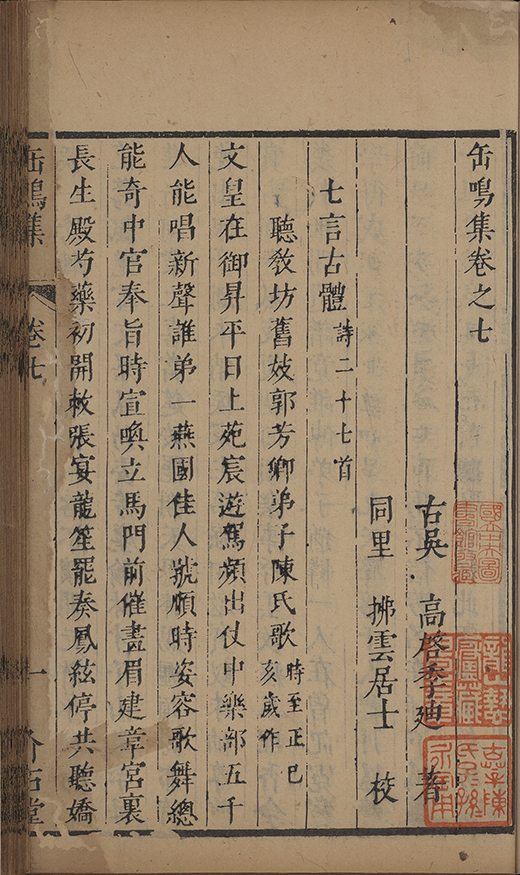 缶鳴集卷之七
古吳 高啓季迪 著
同里 拂雲居士 校
七言古體 詩二十七首
聽敎坊舊妓郭芳卿弟子陳氏歌 時至正己亥歲作
文皇在御昇平日上苑宸遊駕頻出仗中樂部五千
人能唱新聲誰弟一燕國佳人號順時姿容歌舞總
能奇中官奉旨時宣喚立馬門前催畫眉建章宮裏
長生殿芍藥初開敕張宴龍笙罷奏鳳絃停共聽嬌
缶鳴集 卷七 一 介石堂